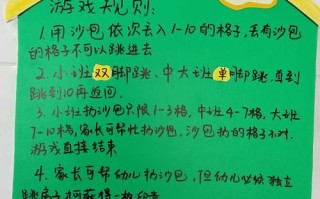 游戏规则：
1.用沙包依次丢入1-10的格子，丢有沙包
的格子不可以跳进去
2.小班双脚跳、中大班单脚跳，直到
跳到10再返回
3.小班扔沙包只限1-3格，中班4-7格，大班
7-10格，家长可帮忙扔沙包，沙包扔的格子不对，
游戏直接结束
4.家长可帮幼儿扔沙包，但幼儿必须独立
跳房子